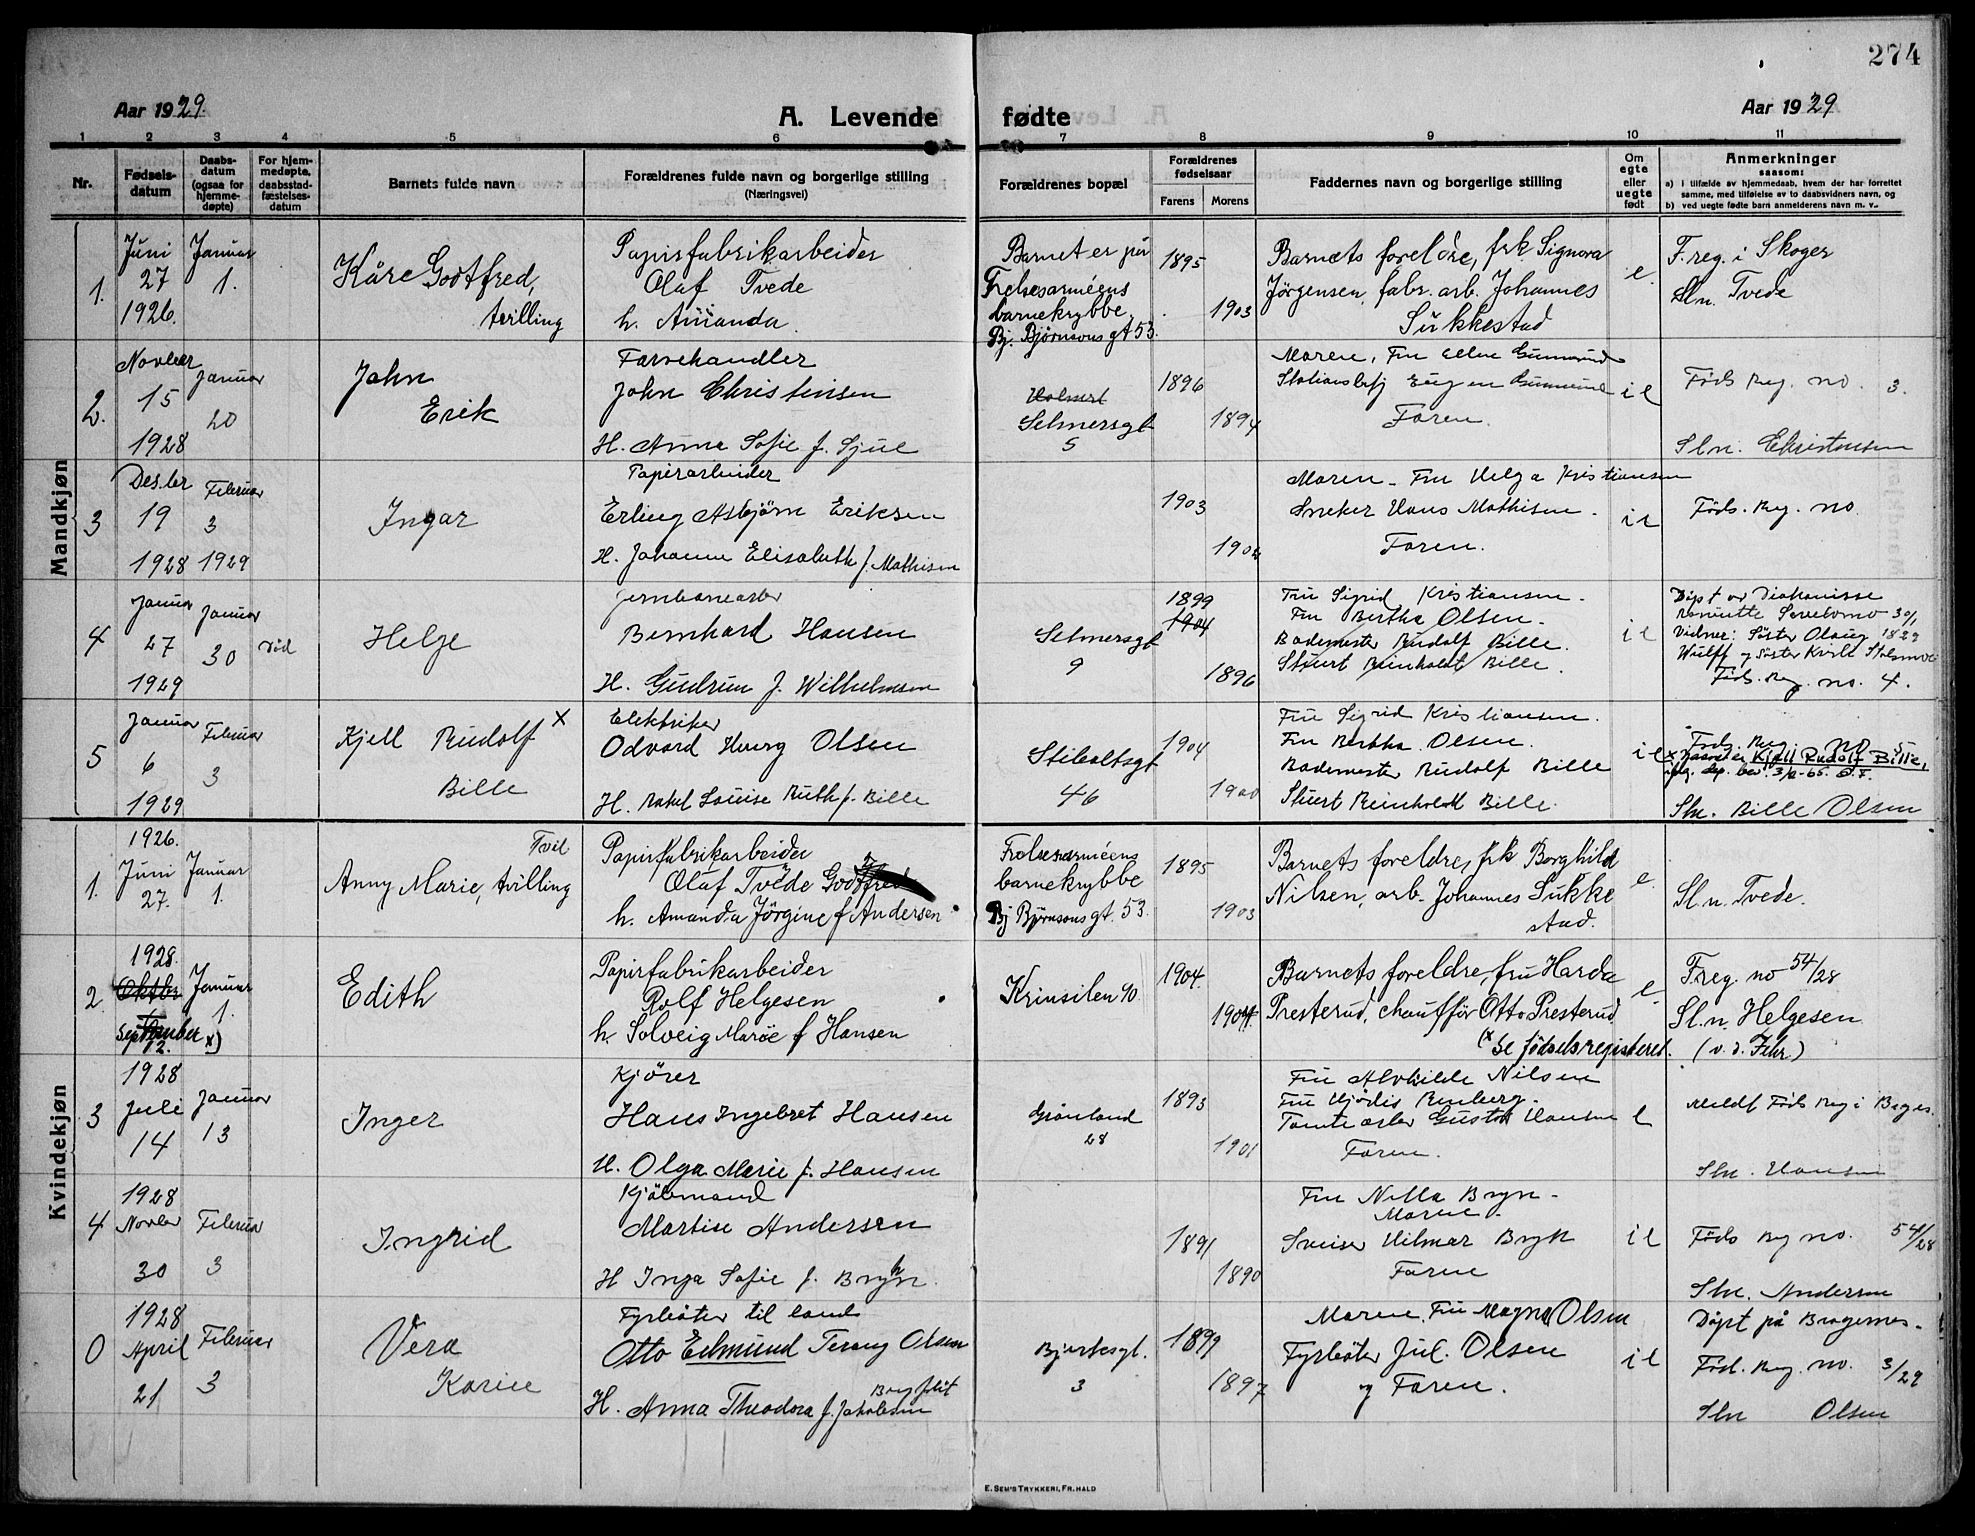 274
Aar 1929.
A. Levende fødte
Aar 1929
1 2 3 4 5 6 7 8 9 10 11
Nr.
Fødsels-
datum
Daabs-
datum
(ogsaa for
hjemme-
døpte)
For hjem-
medøpte,
daabsstad-
fæstelses-
datum
Barnets fulde navn
Forældrenes fulde navn og borgerlige stilling
(Næringsvei)
Forældrenes bopæl
Forældrenes
fødselsaar
Farens
Morens
Faddernes navn og borgerlige stilling
Om
egte
eller
uegte
født
Anmerkninger
saasom:
a) i tilfælde av hjemmedaab, hvem der har forrettet
samme, med tilføielse av to daabsvidners navn, og
b) ved uegte fødte barn anmelderens navn m. v.
Mandkjøn
1.
Juni
27
1926.
Januar
1.
Kåre Godtfred,
tvilling
Papirfabrikarbeider
Olaf Tvede
h. Amanda.
Barnet er på
Frelsesarméens
barnekrybbe.
Bj. Bjørnsons gt 53.
1895
1903
Barnets foreldre, frk Signora
Jørgensen, fabr. arb. Johannes
Sukkestad
e.
F. reg. i Skoger
Sln. Tvede
2.
Novber
15
1928
Januar
20
John
Erik
Farvehandler
John Christensen
H. Anna Sofie f. Sjul
Selmersgt
5
1896
1894
Moren, Fru Ellen
Eugen
Faren.
i e
Føds Reg. no. 3.
Sln. Christensen
3
Des.br
19
1928
Februar
3
1929
Ingar
Papirarbeider
Erling Asbjørn Eriksen
H. Johanne Elisabeth f. Mathisen
1903
1902
Moren - Fru Helga Kristiansen
Sneker Hans Mathisen.
Faren.
i e
Føds. Reg. no
4
Januar
27
1929
Januar
30
Død
Helge
Jernbanearb
Bernhard Hansen
H. Gudrun f. Wilhelmsen
Selmersgt
9
1899
1904
1896
Fru Sigrid Kristiansen.
Fru Bertha Olsen.
Bademester Rudolf Bille.
Stuert Reinholdt Bille.
i e
Døpt av Diakonisse
30/1
Vidner: Søster Olaug 1929
Wulff og Søster
Føds. Reg. no. 4.
5
Januar
6
1929
Februar
3
Kjell Rudolf x
Bille
Elektriker
Odvard Haug Olsen
H. Rakel Louise Ruth f. Bille
Stiboltsgt
46
1904
1900
Fru Sigrid Kristiansen.
Fru Bertha Olsen.
Bademester Rudolf Bille
Stuert Reinholdt Bille.
i e
Føds. Reg. no 5
x Navnet er Kjell Rudolf Bille,
iflg. dep. bev. 3/2-65.
Sln. Bille Olsen
Kvindekjøn
1.
1926.
Juni
27.
Januar
1.
Tvil
Anny Marie, tvilling
Papirfabrikarbeider
Olaf Tvede Godtfred
h. Amanda Jørgine f Andersen
Frelsesarméens
barnekrybbe
Bj Bjørnsons gt. 53.
1895
1903
Barnets foreldre, frk Borghild
Nilsen, arb. Johannes Sukke
stad.
e.
Sl.n. Tvede.
2
1928.
Oktbr
September x)
12.
Januar
1.
Edith
Papirfabrikarbeider
Rolf Helgesen
h. Solveig Marie f Hansen
Krinsilen 40.
1904.
1904.
Barnets foreldre, fru Harda
Presterud, chauffør Otto Presterud
(x Se fødselsregisteret.
e.
F reg. no 54/28
Sl.n. Helgesen
(v. d. Fehr)
3
1928
Juli
14
Januar
13
Inger
Kjører
Hans Ingebret Hansen
H. Olga Marie f. Hansen
Grønland
28
1893
1901
Fru Alvhilde Nilsen
Fru Hjødis Renberg.
Tomtearb Gustav Hansen
Faren.
e
Meldt Føds Reg i Brages.
Sln. Hansen
4
1928
Novber
30
Februar
3
Ingrid
Kjøbmand
Martin Andersen
H Inga Sofie f. Bryhn.
1891
1890
Fru Nilla Bryn -
Moren.
Sveiser Hilmar Bryn
Faren
i e
Føds Reg no. 54/28
Sln. Andersen
0
1928
April
21
Februar
3
Vera
Karin
Fyrbøter til lands
Otto Edmund Terny Olsen
H. Anna Theodora f. Jakobsen
Bjerkesgt.
3
1899
1897
Moren. Fru Magna Olsen
Fyrbøter Jul. Olsen
og Faren.
i e
Døpt på Bragernes.
Fød. Reg. no. 3/29
Sln Olsen
E. SEM'S TRYKKERI, FR. HALD